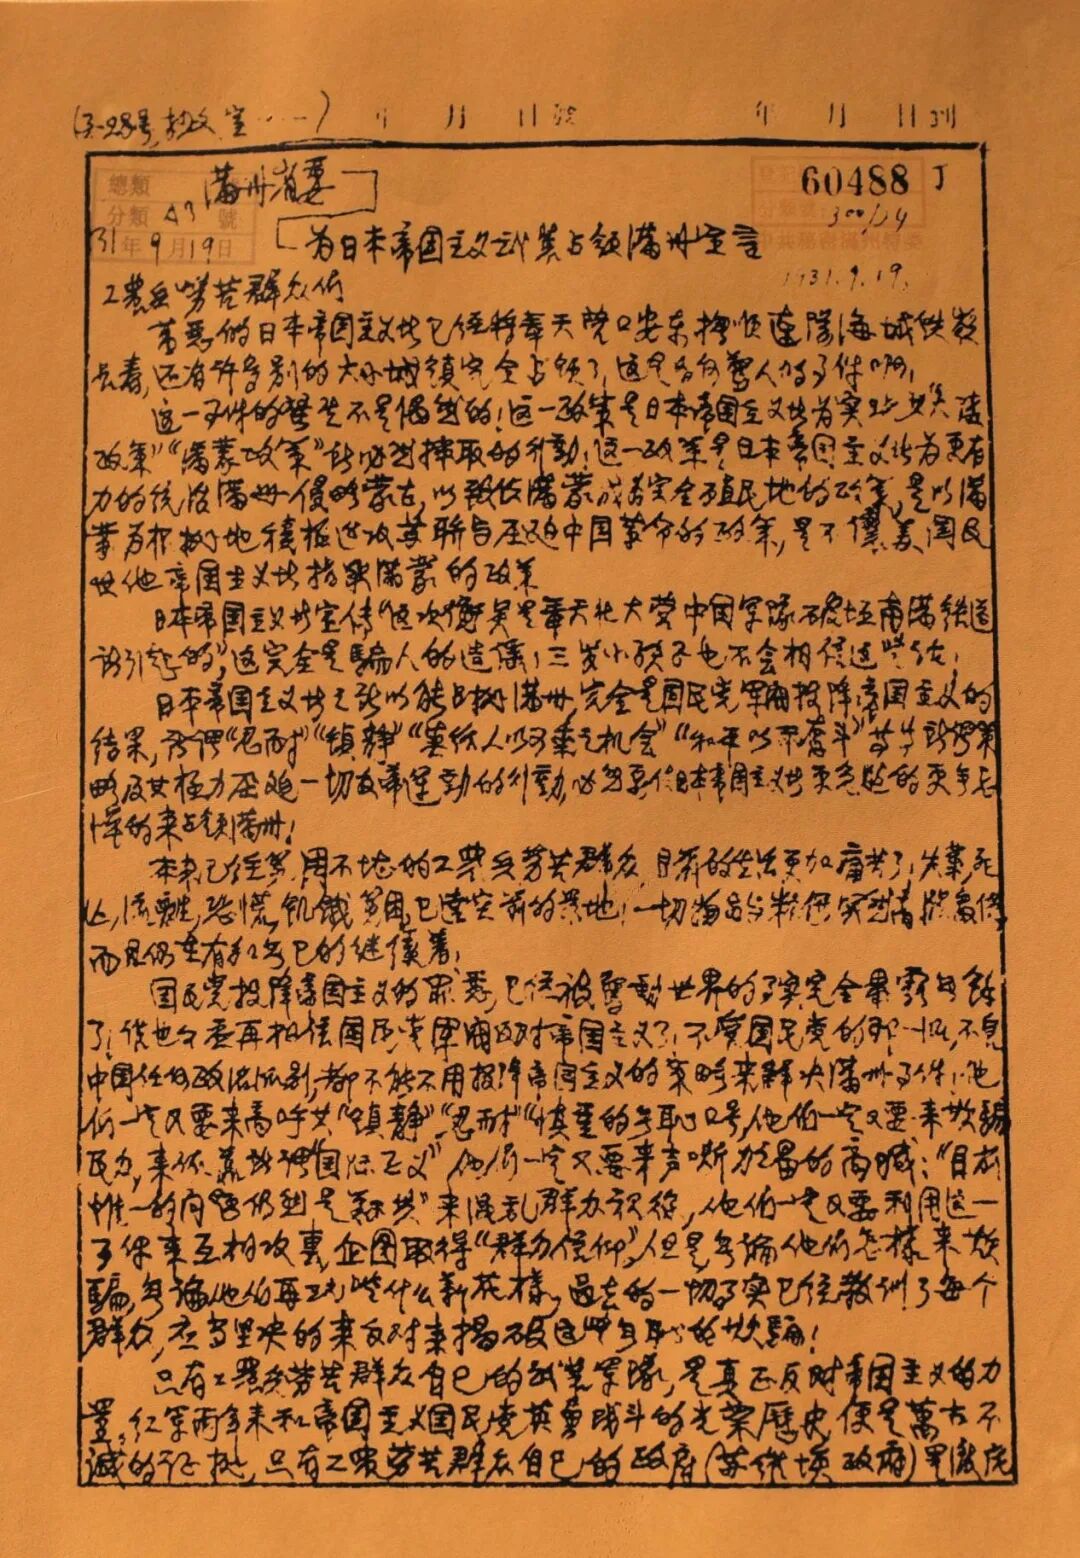 年 月 日 年 月 日到
满州省委
總類
分類 A3 號
31年9月19日
60488 丁
300/24
为日本帝国主义武装占领满洲宣言
1931.9.19.
工农兵劳苦群众们
万恶的日本帝国主义者已经将奉天营口安东抚顺辽阳海城铁岭
长春,还有许多别的大小城镇完全占领了,这是多么惊人的事件啊!
这一事件的发生不是偶然的!这一政策是日本帝国主义者为实现"大陆
政策""满蒙政策"所必然採取的行動!这一政策是日本帝国主义者为更有
力的统治满洲侵略蒙古,以致使满蒙成为完全殖民地的政策,是以满
蒙为根据地积极进攻苏联与压迫中国革命的政策,是不讓美国及
其他帝国主义者指染满蒙的政策
日本帝国主义者宣传"这次衝突是奉天北大营中国军隊破坏南满铁道
所引起的",这完全是騙人的造谣,三岁小孩子也不会相信这些话!
日本帝国主义者之所以能占据满洲,完全是国民党军阀投降帝国主义的
结果,所谓"忍耐""镇静""莫给人以可乘之机会""和平以不奋斗"等等的策
略及其极力压迫一切反帝运動的行動,必然要使日本帝国主义者更急进的更无忌
惮的来占领满洲!
本来已经穷困不堪的工农兵劳苦群众,目前的生活更加痛苦了,失业死
亡,流離,恐慌,饥饿穷困,已達空前的景地!一切物品与粮食突然高漲
而且仍在有加无已的继续着!
国民党投降帝国主义的罪恶,已经被驚動世界的事实完全暴露无餘
了!谁也不要再相信国民党军阀反对帝国主义了!不管国民党的那一派,不管
中国任何政治派别,都不能不用投降帝国主义的策略来解决满洲事件,他
们一定又要来高呼其"镇静""忍耐""慎重"的无耻口号,他们一定又要来欺騙
民众,来依靠所謂"国际正义",他们一定又要来声嘶力竭的高喊:"目前
惟一的问题仍然是剿共"来混乱群众视線,他们一定又要利用这一
事件来互相攻裏,企图取得"群众信仰",但是无論他们怎樣来欺
騙,无論他们再玩些什么新花樣,过去的一切事实已经教训了每个
群众,应当坚决的来反对来揭破这些无耻的欺騙!
只有工農兵劳苦群众自己的武装军隊,是真正反对帝国主义的力
量,红军两年来和帝国主义国民党英勇战斗的光荣歷史,便是萬古不
滅的证据,只有工農劳苦群众自己的政府(苏维埃政府)是澈底